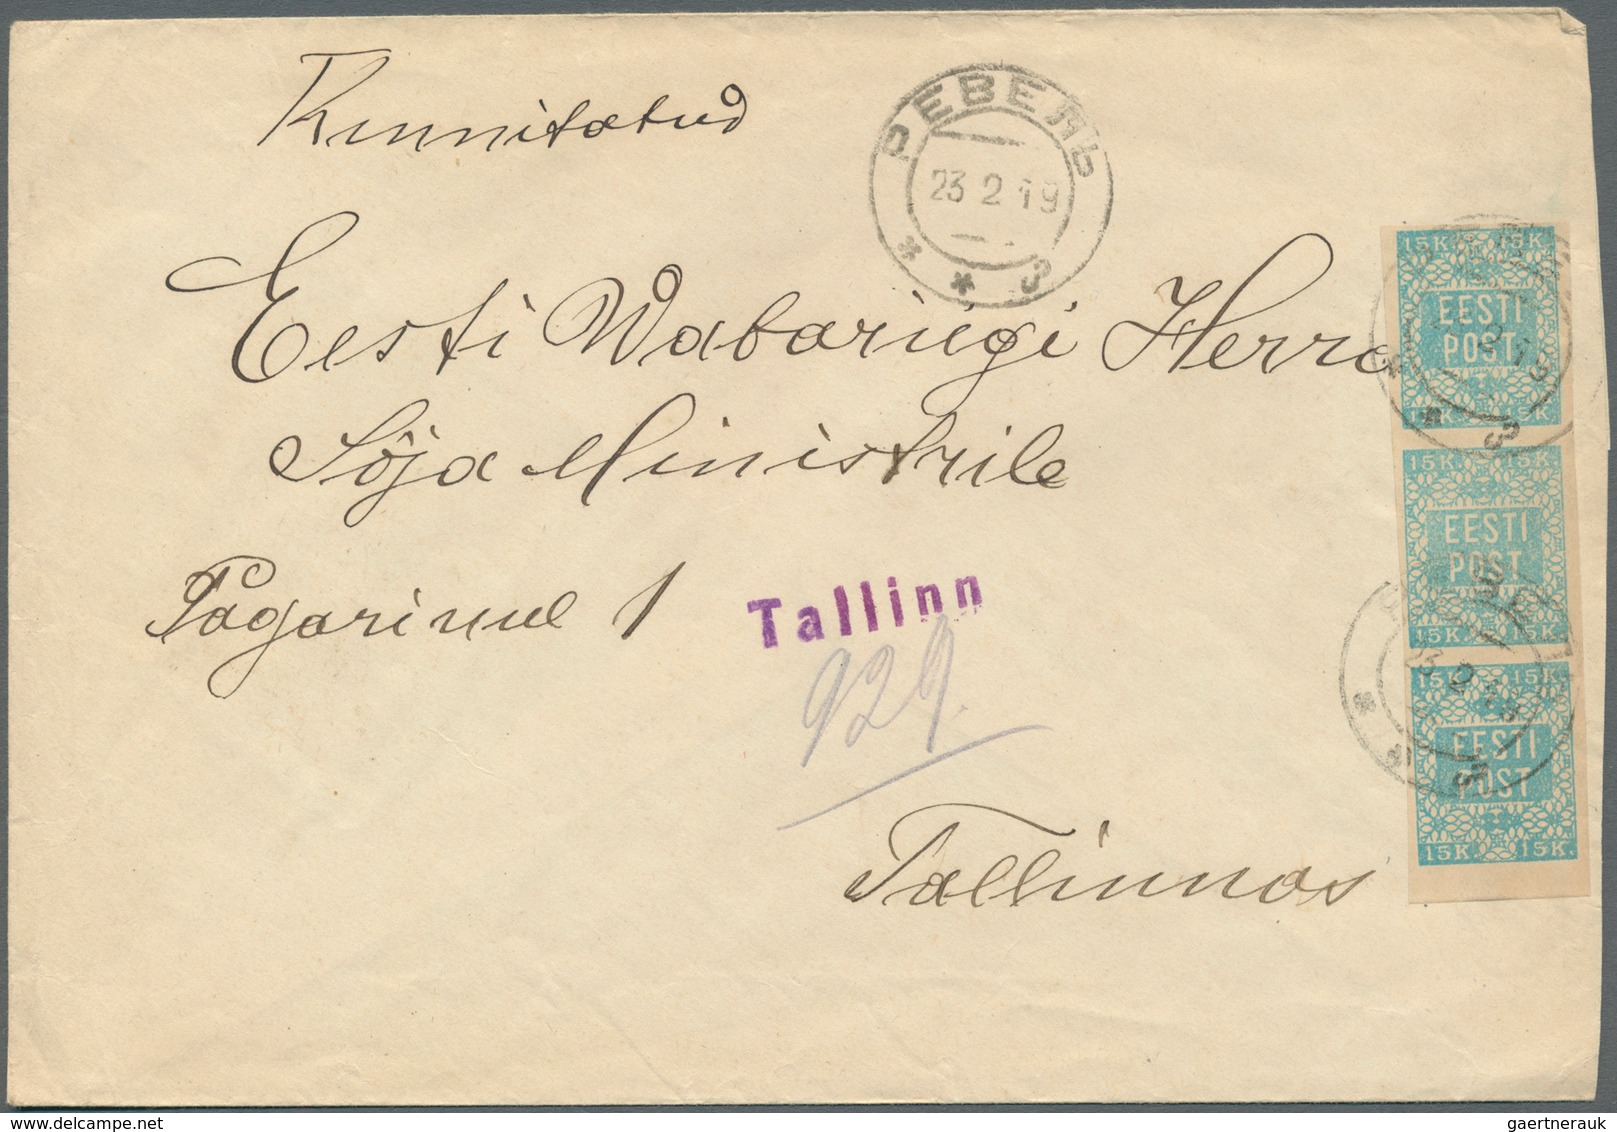 Kinnitatud
РЕВЕЛЬ
23 2 19
* * 3
Eesti Wabariigi Herra
Sõja Ministrile
Pagari uul 1
Tallinn
929.
Tallinnas
15K. 15K.
EESTI
POST
15K. 15K.
15K. 15K.
EESTI
POST
15K. 15K.
23 2 19
15K. 15K.
EESTI
POST
15K. 15K.
www.delcampe.net
gaertnerauk